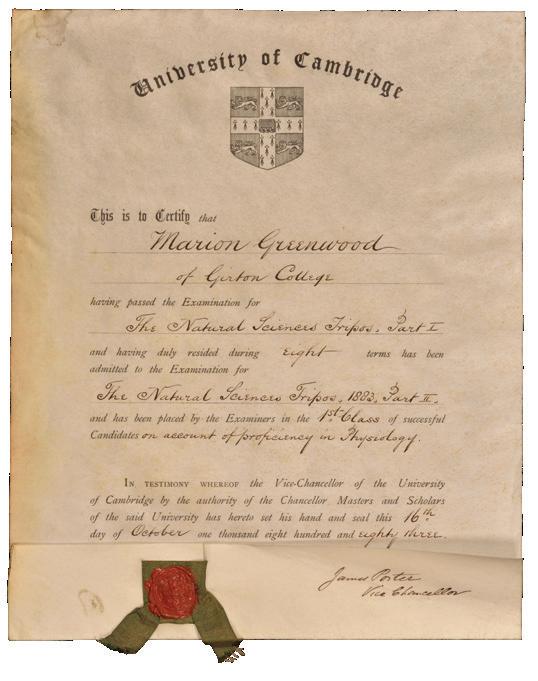 University of Cambridge
This is to Certify that
Marion Greenwood
of Girton College
having passed the Examination for
The Natural Sciences Tripos, Part I
and having duly resided during eight terms has been
admitted to the Examination for
The Natural Sciences Tripos, 1883, Part II,
and has been placed by the Examiners in the 1st Class of successful
Candidates on account of proficiency in Physiology.
IN TESTIMONY WHEREOF the Vice-Chancellor of the University
of Cambridge by the authority of the Chancellor Masters and Scholars
of the said University has hereto set his hand and seal this 16th
day of October one thousand eight hundred and eighty three.
James Porter
Vice Chancellor